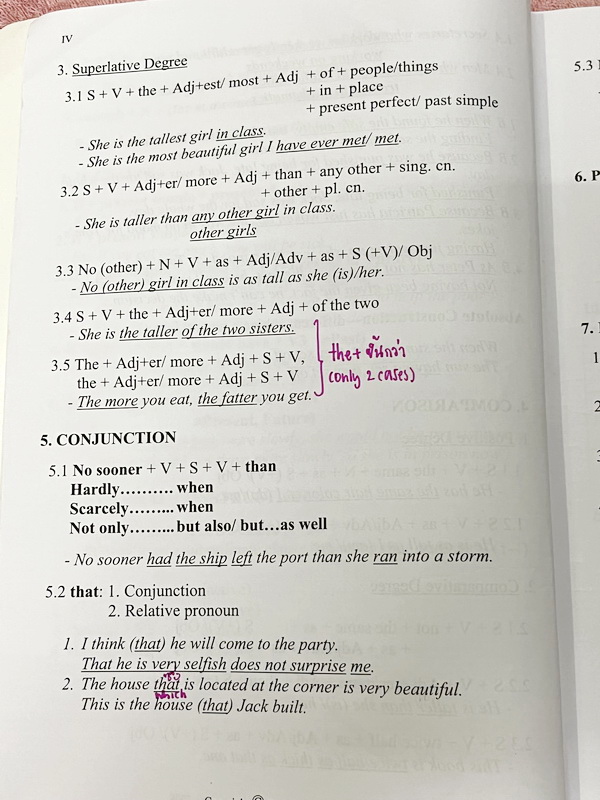 IV
3. Superlative Degree
3.1 S + V + the + Adj+est/ most + Adj + of + people/things
+ in + place
+ present perfect/ past simple
- She is the tallest girl in class.
- She is the most beautiful girl I have ever met/ met.
3.2 S + V + Adj+er/ more + Adj + than + any other + sing. cn.
+ other + pl. cn.
- She is taller than any other girl in class.
other girls
3.3 No (other) + N + V + as + Adj/Adv + as + S (+V)/ Obj
- No (other) girl in class is as tall as she (is)/her.
3.4 S + V + the + Adj+er/ more + Adj + of the two
- She is the taller of the two sisters.
3.5 The + Adj+er/ more + Adj + S + V,
the + Adj+er/ more + Adj + S + V
- The more you eat, the fatter you get.
the + ขั้นกว่า
(only 2 cases)
5. CONJUNCTION
5.1 No sooner + V + S + V + than
Hardly.......... when
Scarcely......... when
Not only......... but also/ but…as well
- No sooner had the ship left the port than she ran into a storm.
5.2 that: 1. Conjunction
2. Relative pronoun
1. I think (that) he will come to the party.
That he is very selfish does not surprise me.
2. The house that is located at the corner is very beautiful.
which
This is the house (that) Jack built.
5.3
6. P
7.
1
2
3